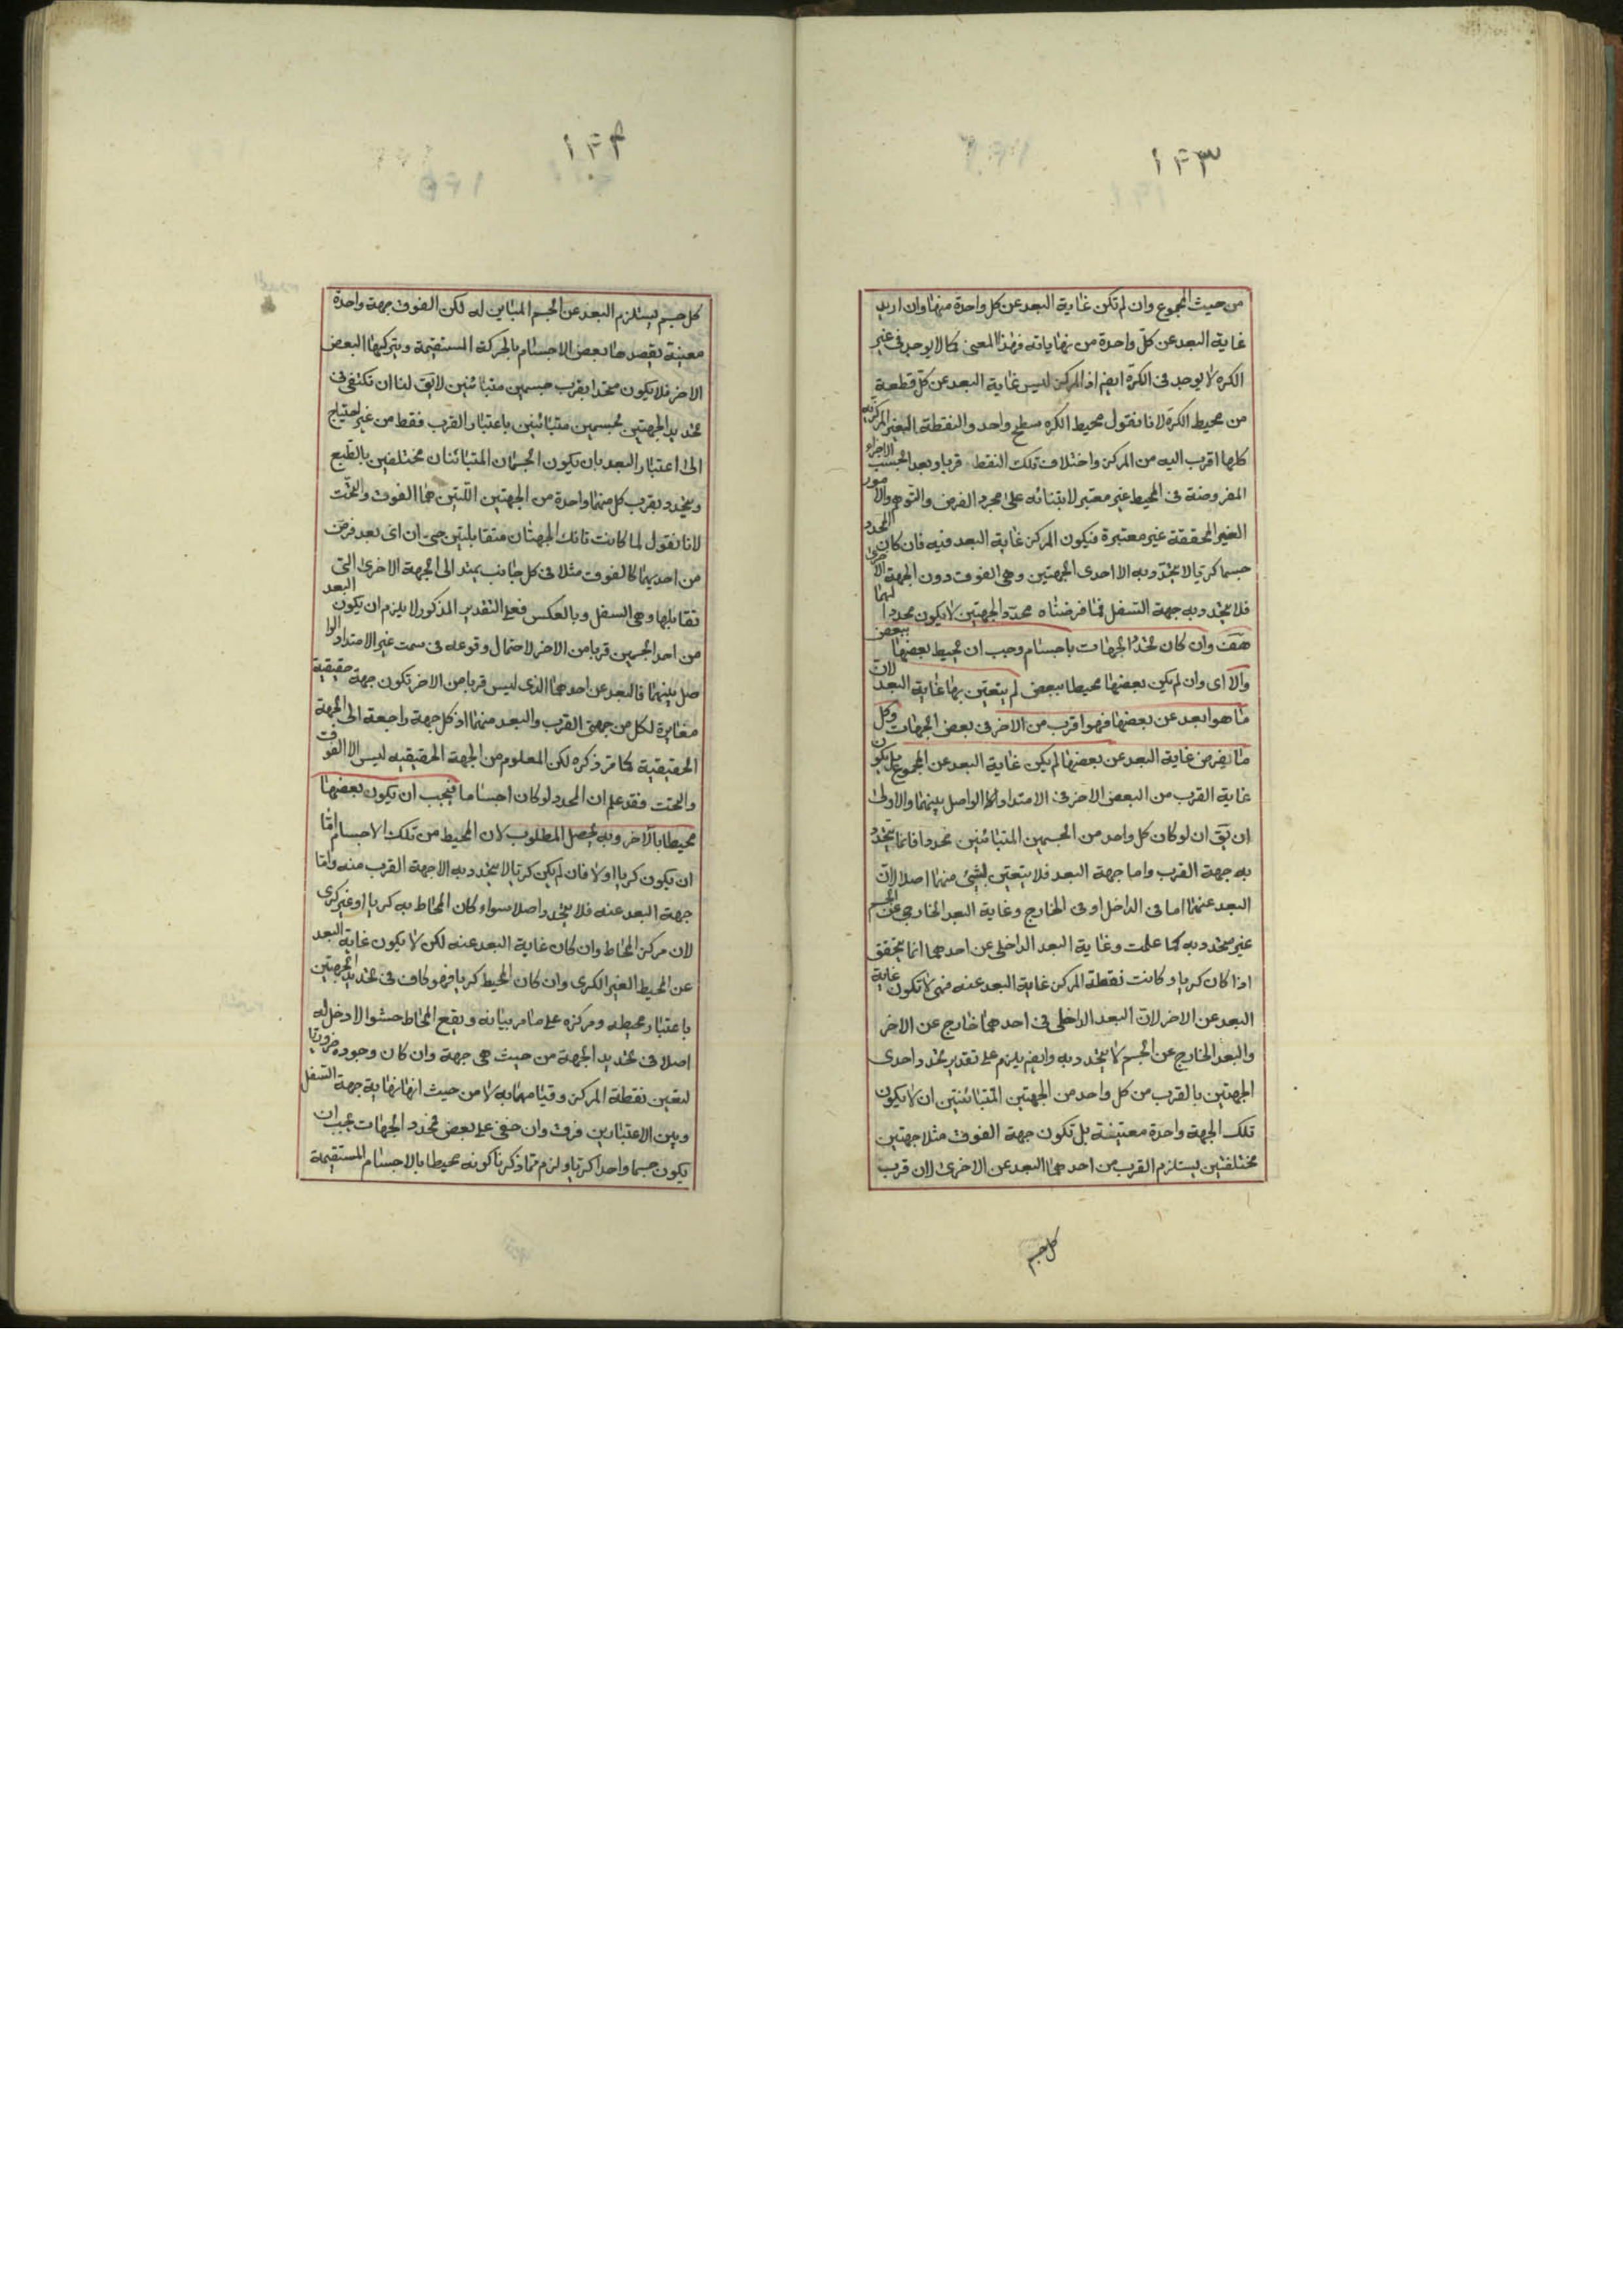 ١٢٣
من حيث المجموع وان لم تكن غاية البعد عن كل واحدة منها وان اريد
غاية البعد عن كلّ واحدة من نهاياته فهذا المعنى كما لا يوجد فى غير
الكره لا يوجد فى الكرّه ايضم اذ المركز ليس غاية البعد عن كلّ قطعة
من محيط الكرَة لانا نقول محيط الكره سطح واحد والنقطة الغير المركزيه
كلها اقرب اليه من المركز واختلاف تلك النقط قربا وبعدا بحسب الاجزاء
المفروضة فى المحيط غير معتبر لابتنائه على مجرد الفرض والتوهم والامور
الغير المحققة غير معتبرة فيكون المركز غاية البعد فيه فان كان المحدد
جسما كريا لا يتحدّد به الا احدى الجهتين وهى الفوق دون الجهة الاخرى
فلا يتحدد به جهة السّفل فما فرضناه محدّد الجهتين لا يكون محددا لهما
هَفَ وان كان تحدّد الجهات باجسام وجب ان يحيط بعضها ببعض
والّا اى وان لم يكن بعضها محيطا ببعض لم يتعيّن بها غاية البعد لانّ
ما هو ابعد عن بعضها فهو اقرب من الاخر فى بعض الجهات وكل
ما نفرض غاية البعد عن بعضها لم يكن غاية البعد عن المجموع بل يكون
غاية القرب من البعض الاخر فى الامتداد الواصل بينهما والاولى
ان يَقَ ان لو كان كل واحد من الجسمين المتبائنين محددا فانما يتحدّد
به جهة القرب واما جهة البعد فلا يتعيّن بشئ منهما اصلا لانّ
البعد عنهما اما فى الداخل او فى الخارج وغاية البعد الخارجى عن الجسم
غير متحدد به كما علمت وغاية البعد الداخلى عن احدهما انما يتحقق
اذا كان كريا وكانت نقطة المركز غاية البعد عنه فهى لا تكون غاية
البعد عن الاخر لانّ البعد الداخلى فى احدهما خارج عن الاخر
والبعد الخارج عن الجسم لا يتحدد به وايضم يلزم على تقدير تحدد احدى
الجهتين بالقرب من كل واحد من الجهتين المتبائنتين ان لا يكون
تلك الجهة واحدة معينة بل تكون جهة الفوق مثلا جهتين
مختلفتين يستلزم القرب من احدهما البعد عن الاخرى لان قرب
كل جسم
١٢٤
كل جسم يستلزم البعد عن الجسم المباين له لكن الفوق جهة واحدة
معينة يقصدها بعض الاجسام بالحركة المستقيمة ويتركها البعض
الاخر فلا يكون متحددا بقرب جسمين متبائنين لا يَق لنا ان نكتفى فى
تحديد الجهتين بجسمين متبائنين باعتبار القرب فقط من غير احتياج
الى اعتبار البعد بان يكون الجسمان المتبائنان مختلفين بالطّبع
ويتحدد بقرب كل منهما واحدة من الجهتين اللّتين هما الفوق والتحّت
لانا نقول لما كانت تانك الجهتان متقابلتين حتى ان اى بعد فرض
من احديهما كالفوق مثلا فى كل جانب يمتد الى الجهة الاخرى التى
تقابلها وهى السفل وبالعكس فعلى التقدير المذكور لا يلزم ان يكون البعد
من احد الجسمين قربا من الاخر لاحتمال وقوعه فى سمت غير الامتداد الوا
صل بينهما فالبعد عن احدهما الذى ليس قربا من الاخر تكون جهة حقيقية
مغايرة لكل من جهتى القرب والبعد منهما اذ كل جهة راجعة الى الجهة
الحقيقية كما مرّ ذكره لكن المعلوم من الجهة الحقيقيه ليس الا الفوق
والتحت فقد علم ان المحدد لو كان اجساما فيجب ان يكون بعضها
محيطا بالآخر وبه يحصل المطلوب لان المحيط من تلك الاجسام امّا
ان يكون كريا او لا فان لم يكن كريا لا يتحدد به الا جهة القرب منه وامّا
جهة البعد عنه فلا يتحدد اصلا سواء كان المحاط به كريا او غير كرى
لان مركز المحاط وان كان غاية البعد عنه لكن لا يكون غاية البعد
عن المحيط الغير الكرى وان كان المحيط كريا فهو كاف فى تحديد الجهتين
باعتبار محيطه ومركزه على ما مر بيانه ويقع المحاط حشوا لا دخل له
اصلا فى تحديد الجهة من حيث هى جهة وان كان وجوده ضروريا
لتعين نقطة المركز وقيامها به لا من حيث انها نهاية جهة السّفل
وبين الاعتبارين فرق وان خفى على بعض فمحدد الجهات يجب ان
يكون جسما واحدا كريا ولزم مما ذكرنا كونه محيطا بالاجسام المستقيمة